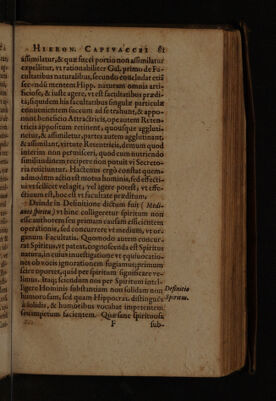 HIERON. CAPIVACCEI 81
assimilatur, & quæ succi portio non assimilatur
expellitur, ut rationabiliter Gal. primo de Fa-
cultatibus naturalibus, secundo concludat etiã
secundũ mentem Hipp. naturam omnia arti-
ficiose, & iuste agere, ut est facultatibus prædi-
ta, siquidem his facultatibus singulæ particulæ
convenientem succum ad se trahunt, & appo-
nunt beneficio Attractricis, ope autem Reten-
tricis appositum retinent, quousque aggluti-
netur, & assimiletur, partes autem agglutinant,
& assimilant, virtute Retentricis, demum quod
interim non permisceri, quod cum nutriendo
similitudinem recipere non potuit vi Secreto-
ria reiiciuntur. Hactenus ergò constat quem-
admodum actio est motus hominis, sed effecti-
vi ut scilicet vel agit, vel agere potest, ut effe-
ctivum est, hoc est ut facultate præditum.
Deinde in Definitione dictum fuit (Medi-
ante spiritu) ut hinc colligeretur Spiritum non
esse authorem seu primam causam efficientem
operationis, sed concurrere ut medium, ut or-
ganum Facultatis. Quomodo autem concur-
rat Spiritus, ut pateat, cognoscenda est Spiritus
natura, in cuius investigatione ut equivocatio-
nes ob vocis ignorationem fugiamus, primum
scire oportet, quid per spiritum significare ve-
limus. Itaq; sciendum nos per Spiritum intel-
ligere Hominis substantiam non solidam non
humorosam, sed quam Hippocrates distinguẽs
à solidis, & humoribus vocabat impetentem
seu impetum facientem. Quæ sane spirituosa,
Definitio
Spiritus.
F
sub-